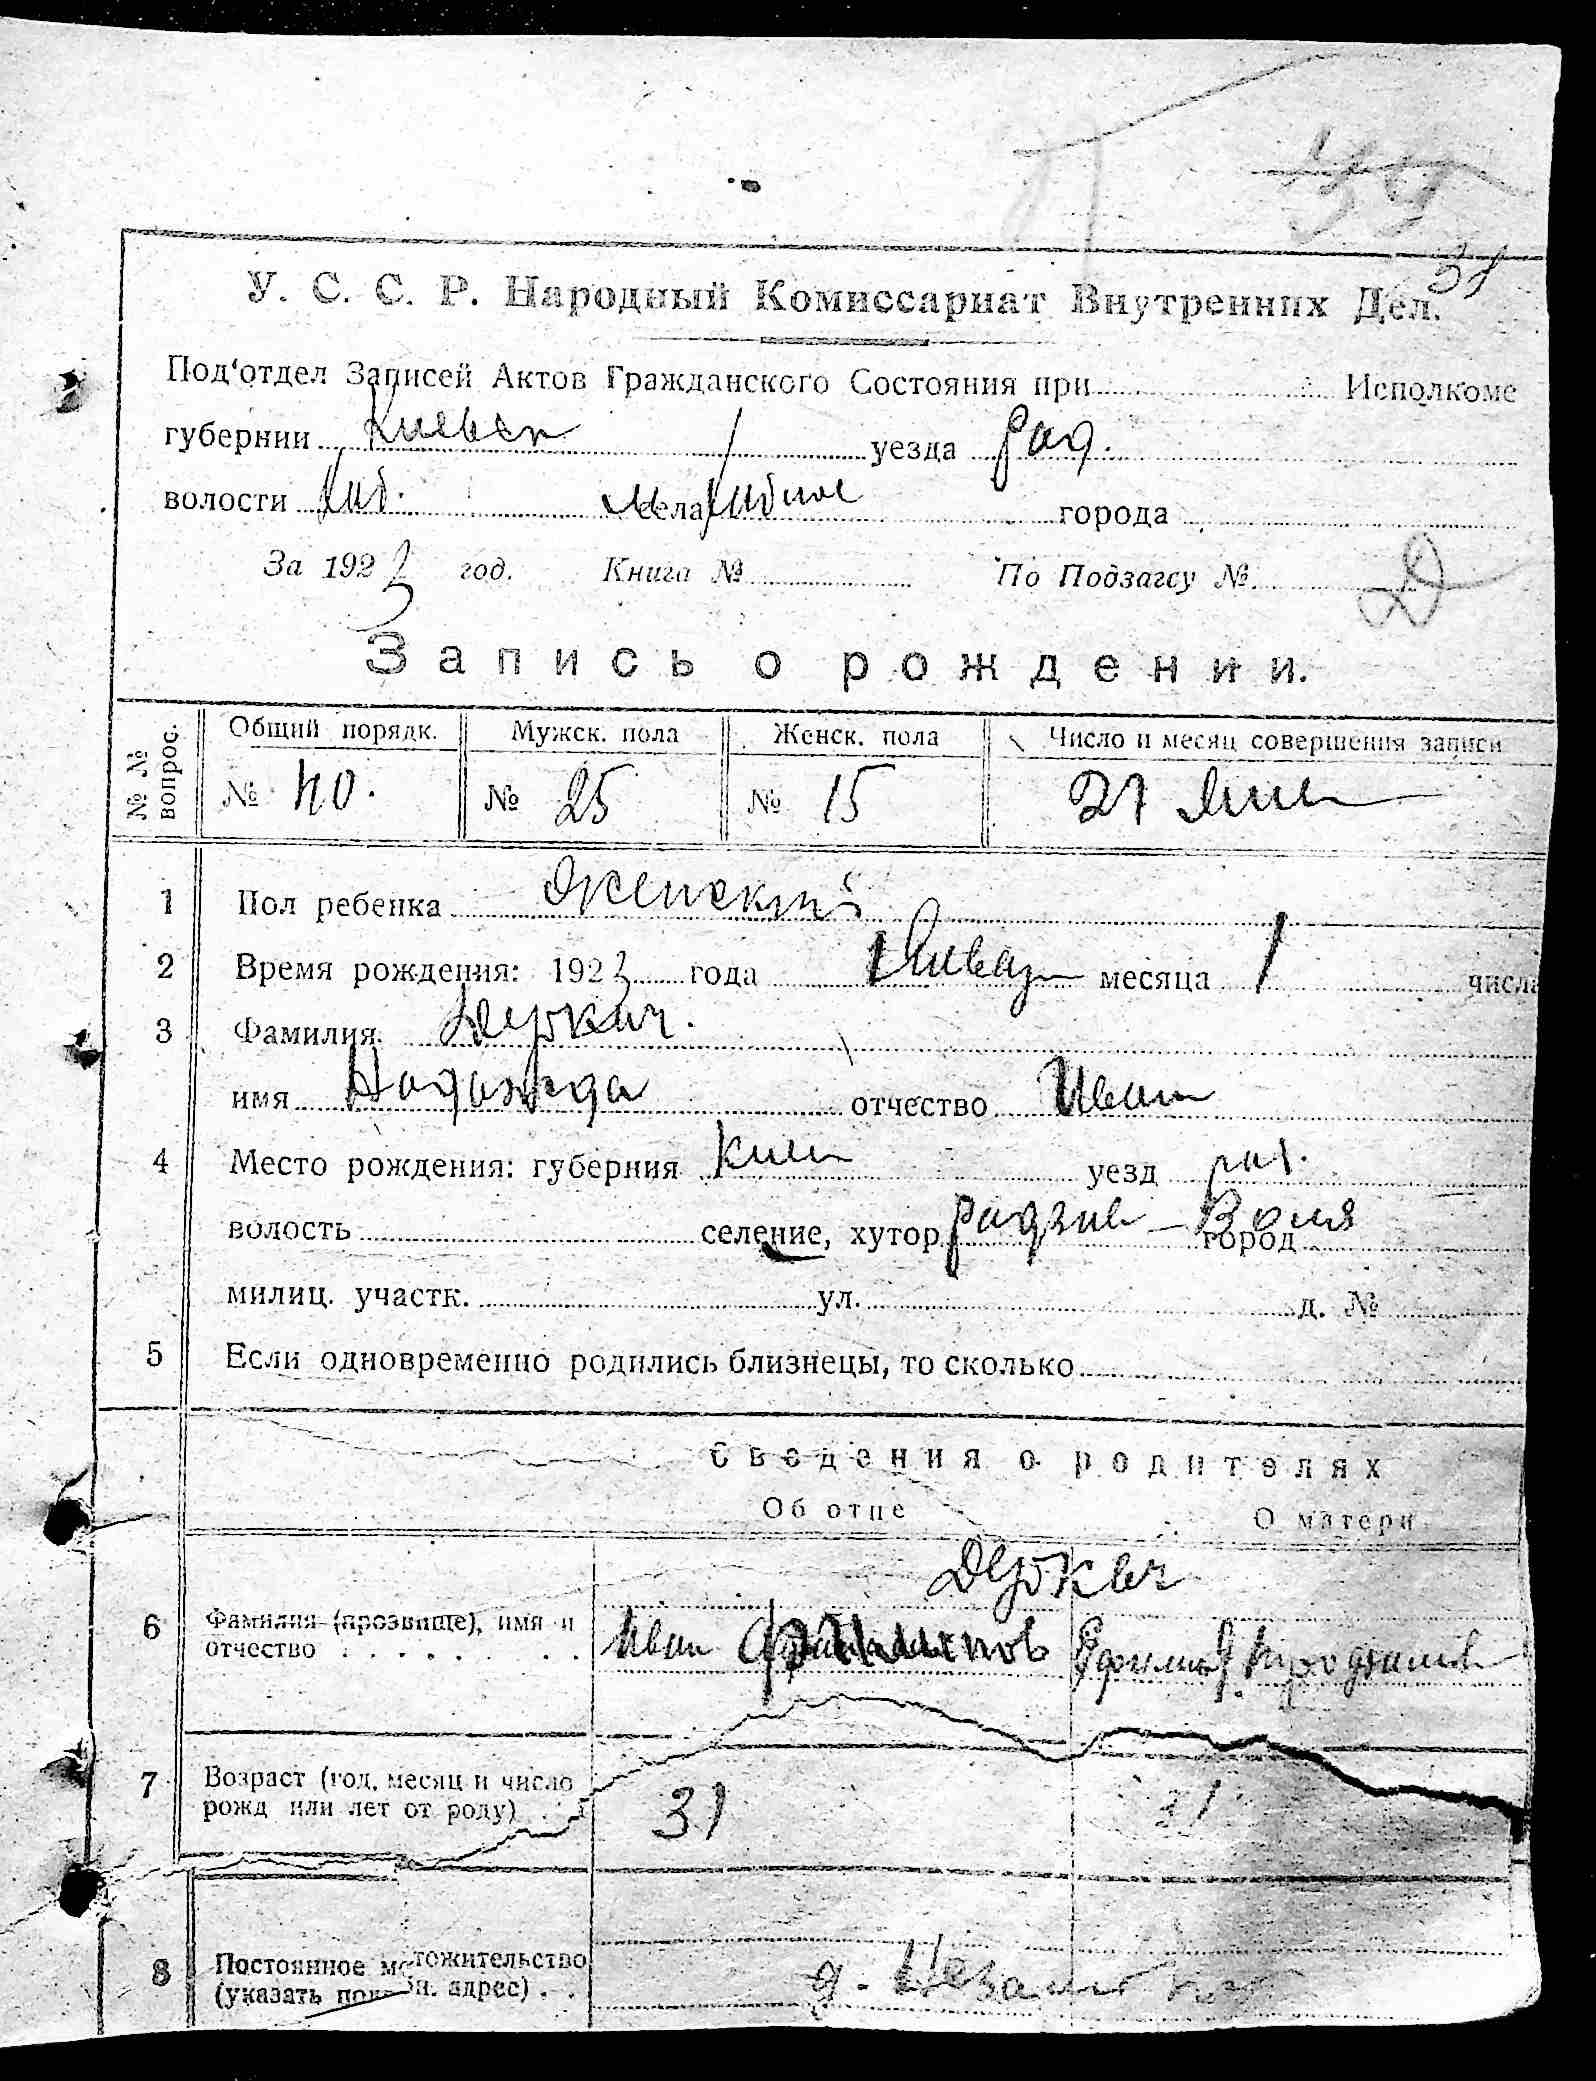 39
38
У. С. С. Р. Народный Комиссариат Внутренних Дел.
Под‘отдел Записей Актов Гражданского Состояния при Исполкоме
губернии Киевск уезда Рад.
волости села города
За 1923 год. Книга № По Подзагсу №
Запись о рождении.
№ № вопрос. Общий порядк. Мужск. пола Женск. пола Число и месяц совершения записи
№ 40. № 25 № 15 27
1 Пол ребенка Женский
2 Время рождения: 1923 года Январ месяца 1 числа
3 Фамилия Деркач.
имя Надежда отчество Иван
4 Место рождения: губерния Киев уезд рад.
волость селение, хутор Радзив-Воля город
милиц. участк. ул. д. №
5 Если одновременно родились близнецы, то сколько
Сведения о родителях
Об отце О матери
Деркач
6 Фамилия (прозвище), имя и отчество Иван
7 Возраст (год, месяц и число рожд или лет от роду) 31 31
8 Постоянное местожительство (указать адрес)